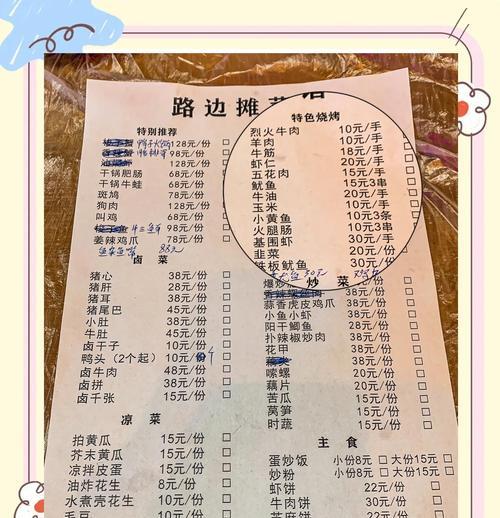 路边摊菜
特别推荐
128元/份
98元/份
油 128元/份
干锅肥肠 68元/份
干锅牛蛙 68元/份
斑鸠 78元/份
狗肉 128元/份
叫鸡 68元/份
98元/份
姜辣鸡爪 78元/份
88元
卤菜
猪心 38元/份
猪肝 28元/份
猪耳 38元/份
猪尾巴 45元/份
小肚 38元/份
牛肚 45元/份
卤干子 10元/份
鸭头（2个起） 10元/份
卤牛肉 48元/份
卤拼 38元/份
卤千张 15元/份
凉菜
拍黄瓜 15元/份
芥末黄瓜 15元/份
凉拌皮蛋 15元/份
油炸花生 8元/份
水煮壳花生 10元/份
毛豆 10元/份
特色烧烤
烈火牛肉 10元/手
羊肉 10元/手
牛筋 18元/手
虾仁 20元/手
五花肉 15元/手
鱿鱼 15元3串
牛油 20元/手
玉米 10元/手
小黄鱼 10元3条
火腿肠 10元3串
基围虾 30元/手
韭菜 20元/份
铁板鱿鱼 30元/份
30元
炒菜
爆炒 38元/份
38元/份
蒜香虎皮鸡爪 38元/份
小鱼小虾 38元/份
阳干鲫鱼 38元/份
扑辣椒炒肉 38元/份
花甲 38元/份
38元/份
嗦螺 20元/份
藕片 20元/份
苦瓜 15元/份
莴笋 15元/份
时蔬 15元/份
主食
蛋炒饭 小份8元 大份15元
炒粉 小份8元 大份15元
虾饼 22元/份
牛肉饼 30元/份
芝麻饼 22元/份